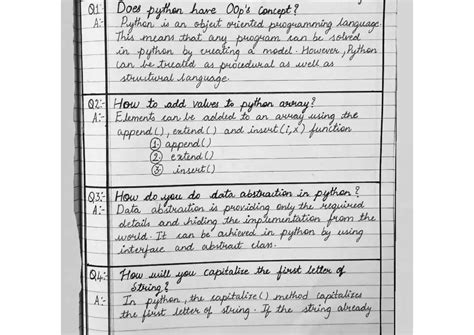 Q1:- Does python have OOp's concept?
A:- Python is an object oriented programming language.
This means that any program can be solved
in python by creating a model. However, Python
can be treated as procedural as well as
structural language.
Q2:- How to add values to python array?
A:- Elements can be added to an array using the
append(), extend() and insert(i,x) function
① append()
② extend()
③ insert()
Q3:- How do you do data abstraction in python?
A:- Data abstraction is providing only the required
details and hiding the implementation from the
world. It can be achieved in python by using
interface and abstract class.
Q4:- How will you capitalize the first letter of
String?
A:- In python, the capitalize() method capitalizes
the first letter of string. If the string already